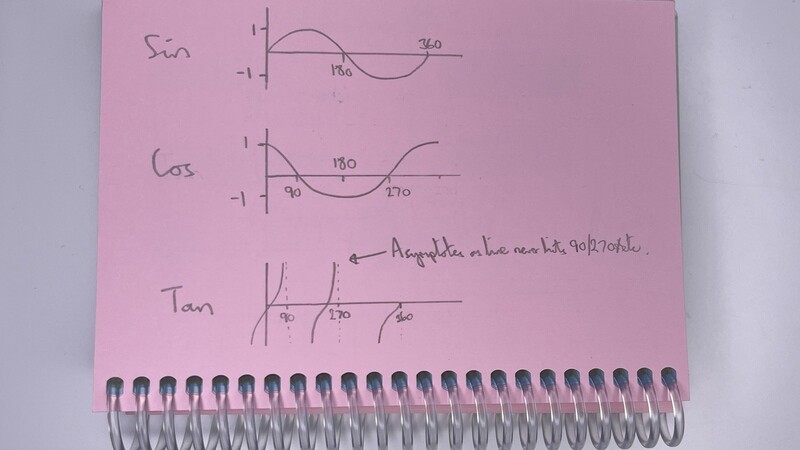 Sin
1
360
180
-1
Cos
1
180
90
270
-1
Asymptotes as line never hits 90/270/etc.
Tan
90
270
360